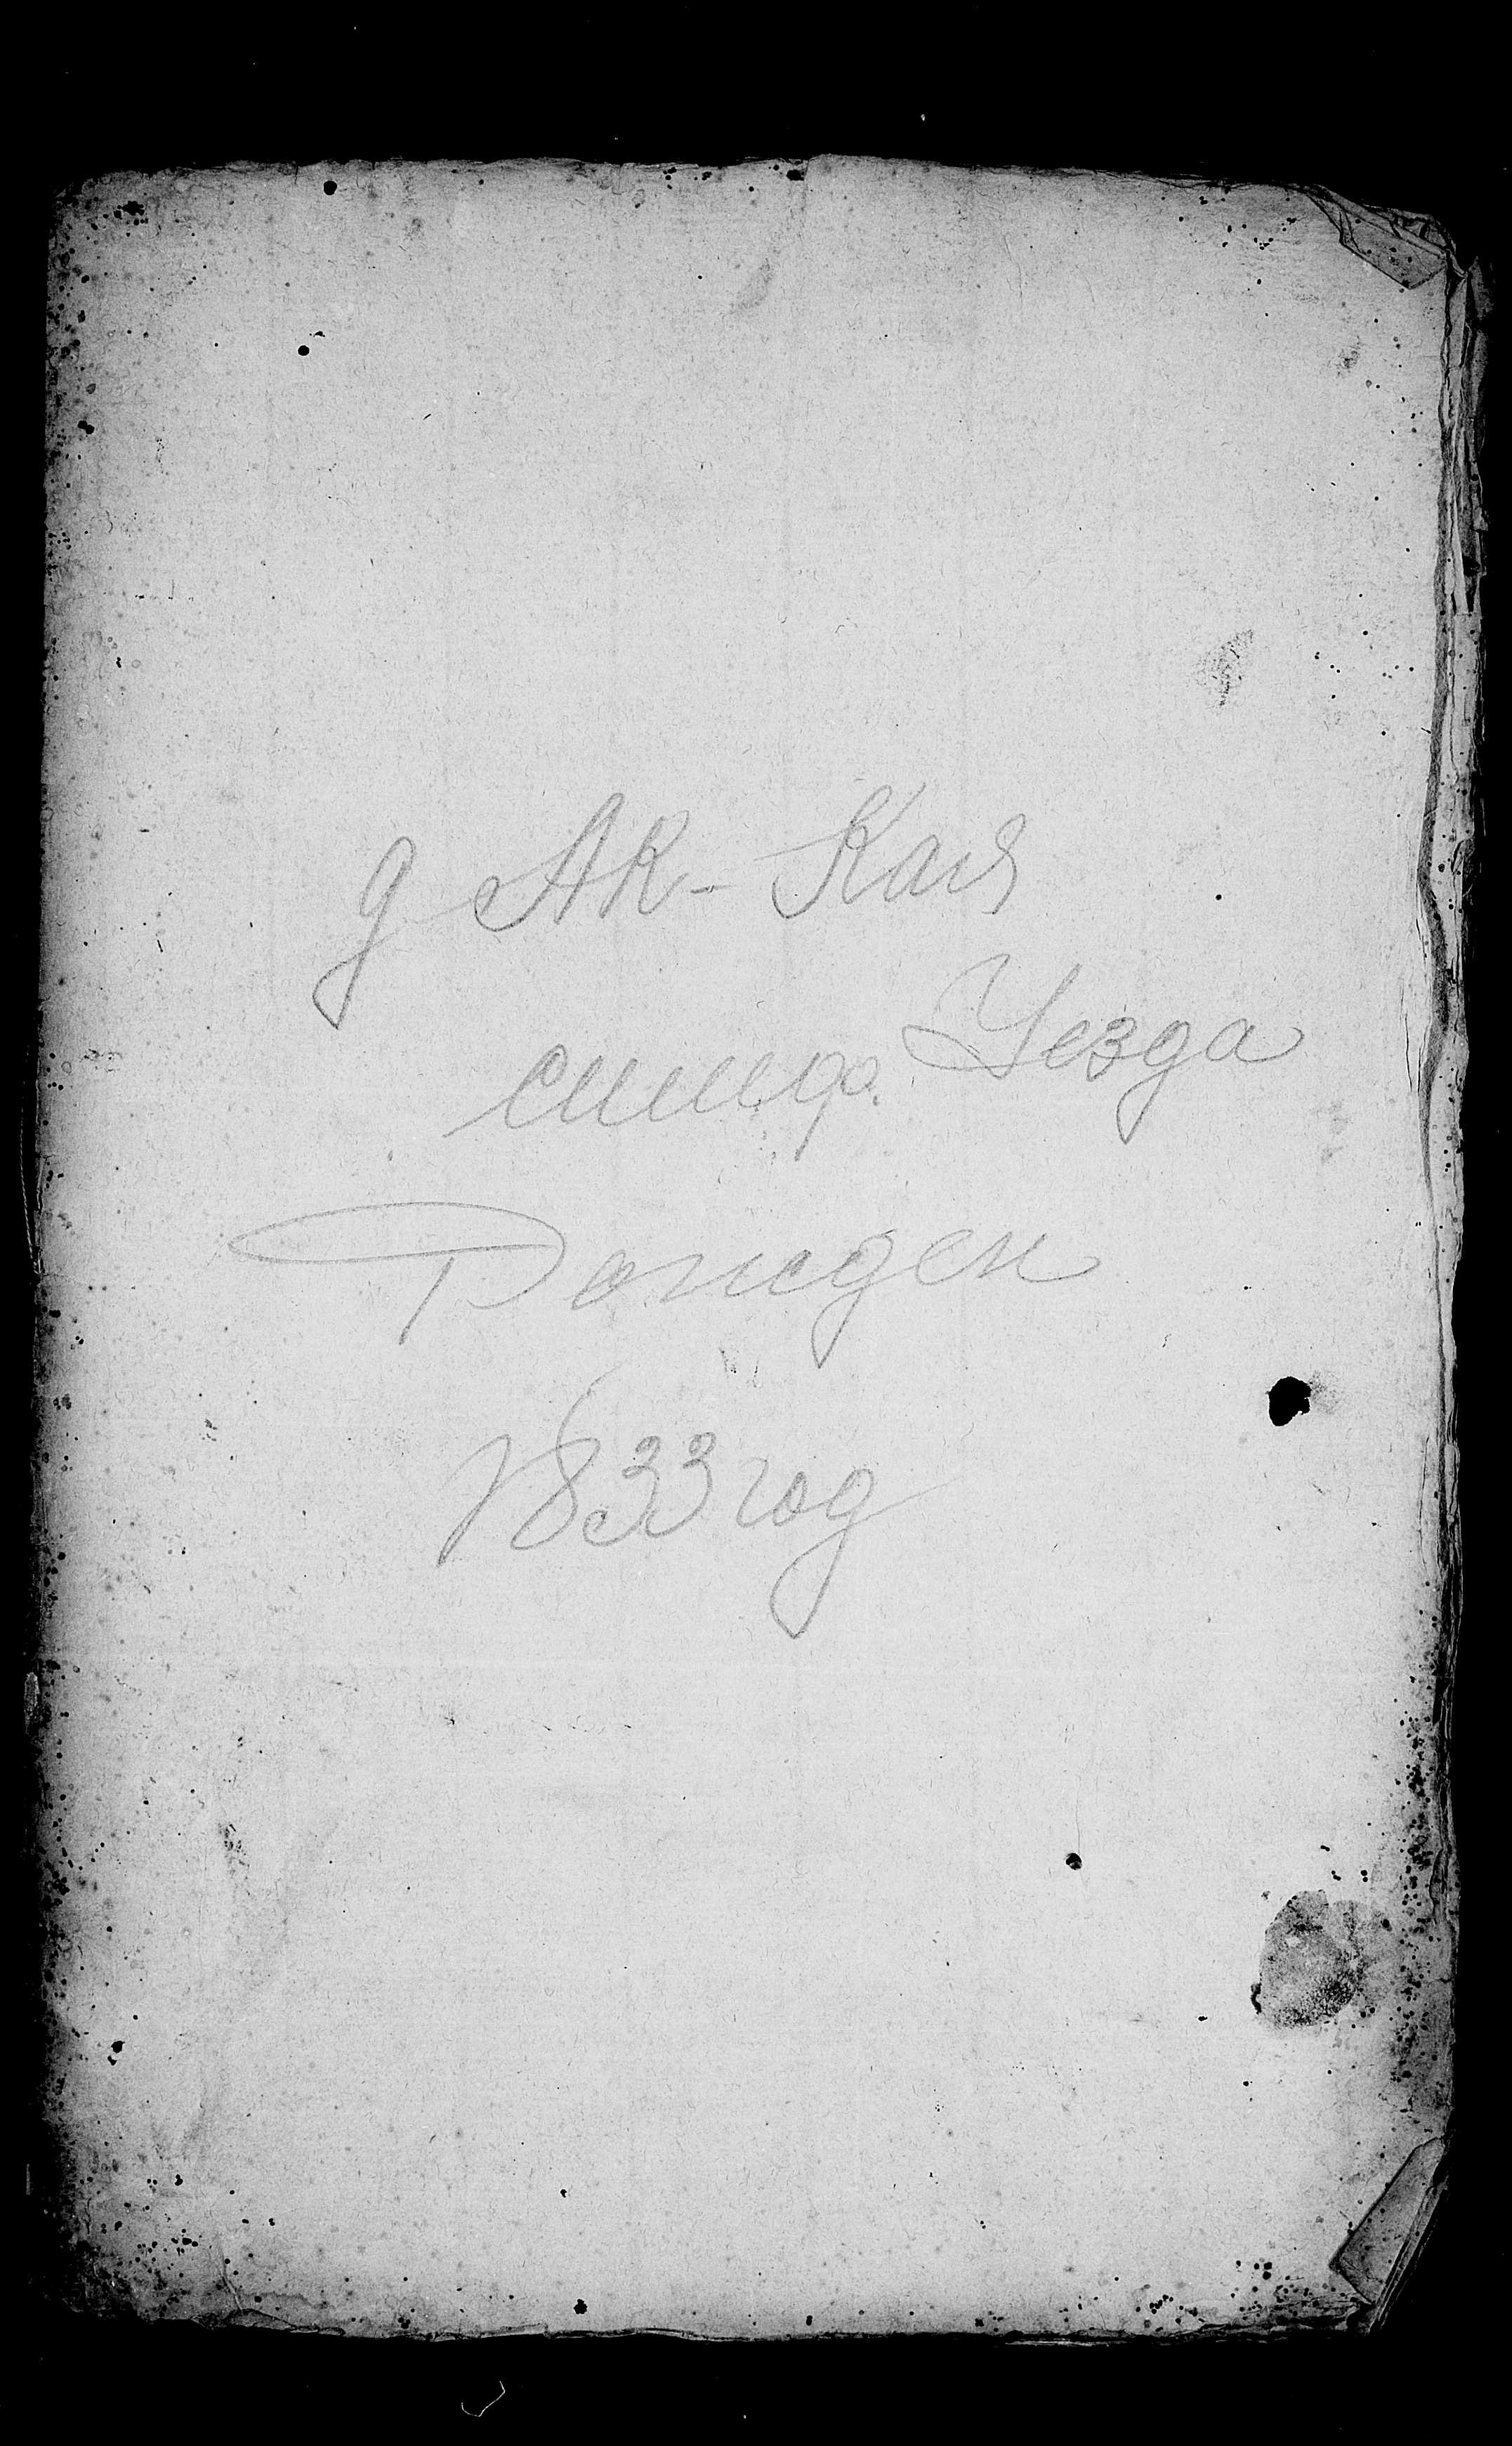 д Ак-Кая
симф. Уезда
Рожден
1833 год